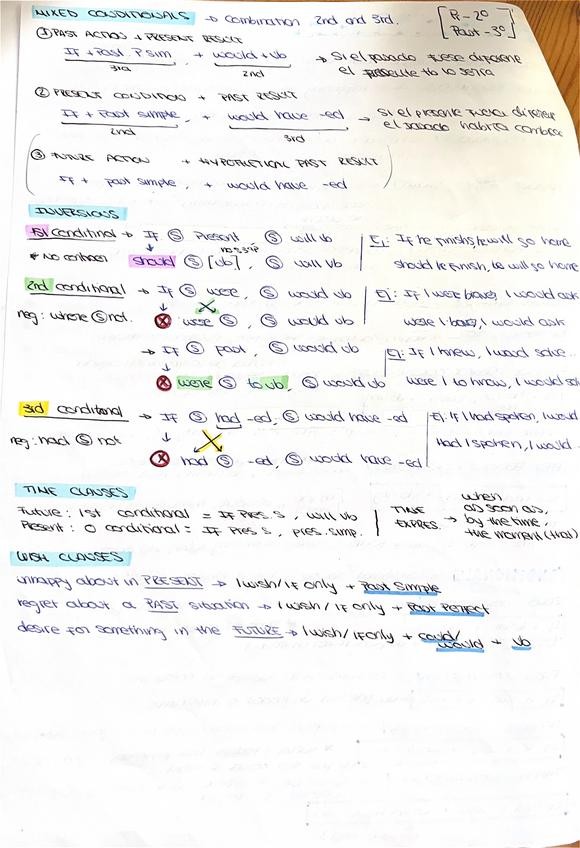 MIXED CONDITIONALS → Combination 2nd and 3rd. [Pr - 2º
Past - 3º]
① PAST ACTION + PRESENT RESULT
If + Past P sim, + would + vb → Si el pasado fuese diferente
3rd 2nd el presente tb lo sería
② PRESENT CONDITION + PAST RESULT
If + Past simple, + would have -ed → Si el presente fuera diferente
2nd 3rd el pasado habría
③ FUTURE ACTION + HYPOTHETICAL PAST RESULT
If + past simple, + would have -ed
INVERSIONS
1st conditional → If Ⓢ Present, Ⓢ will vb Ej: If he finishs, he will go home
↓ no 3ªsp
* NO should Ⓢ [vb], Ⓢ will vb should he finish, he will go home
2nd conditional → If Ⓢ were, Ⓢ would vb Ej: If I were brave, I would ask
neg: where Ⓢ not. ⓧ were Ⓢ, Ⓢ would vb were I brave, I would ask
→ If Ⓢ past, Ⓢ would vb Ej: If I knew, I would solve...
↓
ⓧ were Ⓢ to vb, Ⓢ would vb were I to know, I would
3rd conditional → If Ⓢ had -ed, Ⓢ would have -ed Ej: If I had spoken, I would
neg: had Ⓢ not ↓ Had I spoken, I would...
ⓧ had Ⓢ -ed, Ⓢ would have -ed
TIME CLAUSES
Future: 1st conditional = If Pres. S, will vb | TIME EXPRES. → when
Present: 0 conditional = If Pres S, pres. simp. as soon as,
by the time,
the moment (that)
WISH CLAUSES
unhappy about in PRESENT → I wish/If only + Past Simple
regret about a PAST situation → I wish/If only + Past Perfect
desire for something in the FUTURE → I wish/if only + could/would + vb